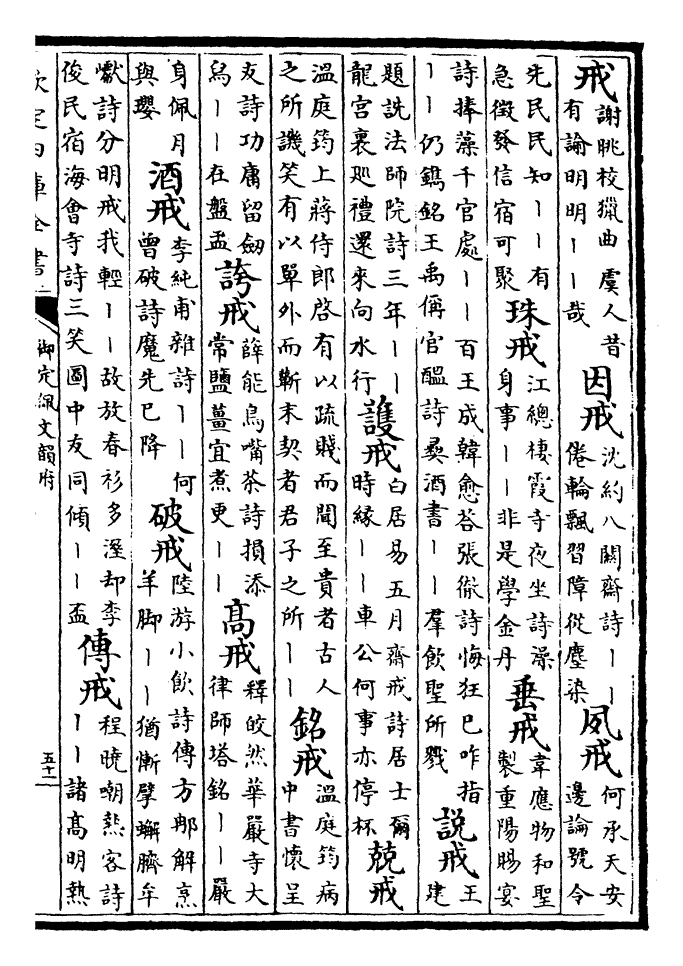 戒謝眺校獵曲虞人昔有論明明——哉因戒沈約八關齋詩——倦輪飄習障從塵染夙戒何承天安邊論號令
先民民知——有急徵發信宿可聚珠戒江總棲霞寺夜坐詩澡身事——非是學金丹垂戒韋應物和聖製重陽賜宴
詩捧藻千官處——百王成韓愈荅張徹詩悔狂已咋指——仍鐫銘王禹偁官醖詩彜酒書——羣飲聖所戮說戒王建
題詵法師院詩三年——龍宮裏廵禮還來向水行護戒白居易五月齋戒詩居士爾時緣——車公何事亦停杯兢戒
溫庭筠上蔣侍郎啓有以疏賤而聞至貴者古人之所譏笑有以單外而蘄末契者君子之所——銘戒溫庭筠病中書懷呈
友詩功庸留劒舄——在盤盂誇戒薛能鳥嘴茶詩損添常鹽薑宜煮更——髙戒釋皎然華嚴寺大律師塔銘——嚴
身佩月與瓔酒戒李純甫雜詩——何曾破詩魔先已降破戒陸游小飲詩傳方那解烹羊脚——猶慚擘蠏臍牟
巘詩分明戒我輕——故放春衫多溼却李俊民宿海會寺詩三笑圖中友同傾——盃傳戒程曉嘲熱客詩——諸髙明熱
欽定四庫全書
御定佩文韻府
五十二